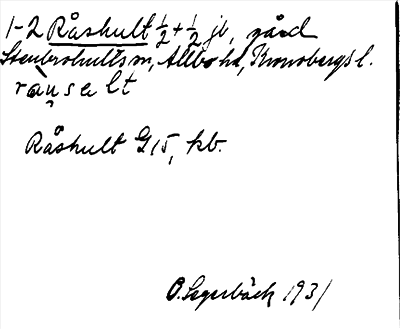 1-2 Råshult ½+½ jb, gård
Stenbrohults sn, Allbo hd, Kronobergs l.
råu̯salt
Råshult G15, kb.
B. Segerbäck 1931